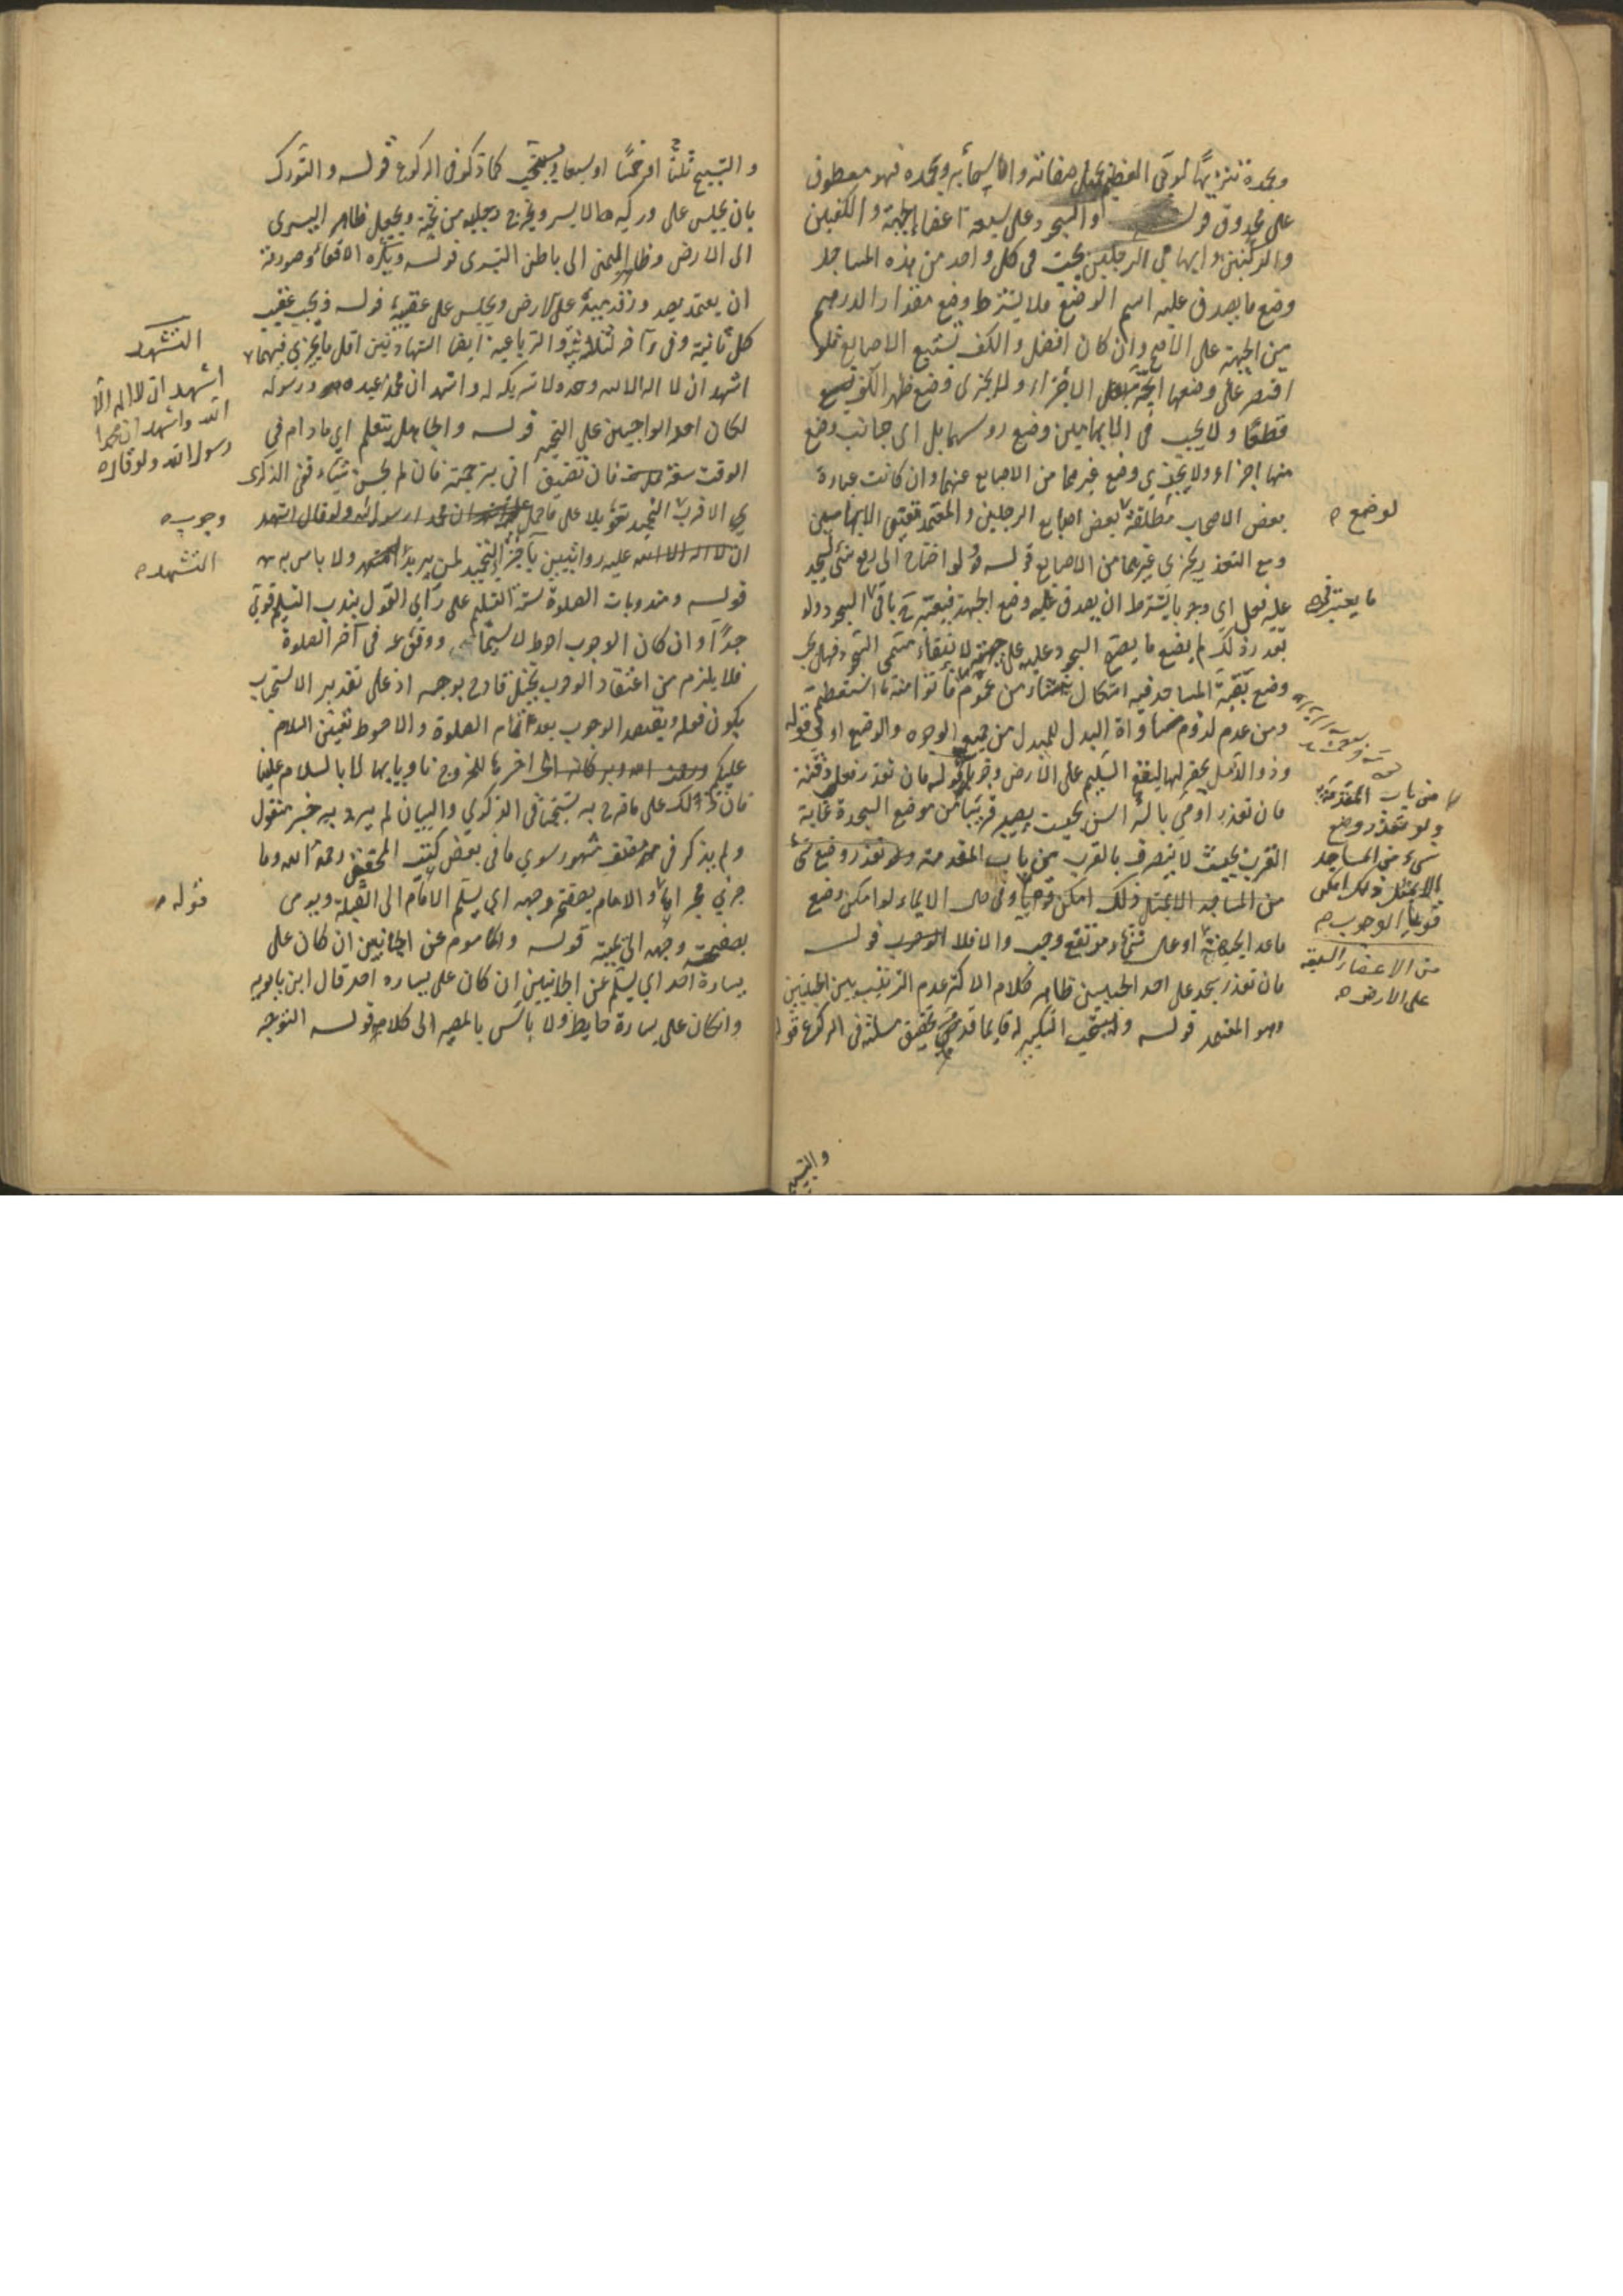 وبحمده تنزيها لربي العظيم بجليل صفاته واسمائه وبحمده فهو معطوف
على محذوف قوله والسجود على سبعة اعضاء الجبهة والكفين
والركبتين وابهامي الرجلين يجب في كل واحد من هذه المساجد
وضع ما يصدق عليه اسم الوضع فلا يشترط وضع مقدار الدرهم
من الجبهة على الاصح وان كان افضل والكف تستتبع الاصابع فلو
اقتصر على وضعها اتجه الاجزاء ولا يجزي وضع ظهر الكف
قطعا ولا يجب في الابهامين وضع روسهما بل اي جانب وضع
منها اجزاء ولا يجزي وضع غيرهما من الاصابع عنهما وان كانت عبارة
بعض الاصحاب مطلقة بعض اصابع الرجلين والمعتمد تعيين الابهامين
لوضع
ومع التعذر يجزي غيرهما من الاصابع قوله ولو احتاج الى رفع شئ ليسجد
عليه فعل اي وجوبا يشترط ان يصدق عليه وضع الجبهة فيعتبر في باقي السجود ولو
ما يعتبر في
تعذر ذلك لم يضع ما يصح السجود عليه على جبهته لانتفاء مسمى السجود فهل يجب
وضع بقية المساجد فيه اشكال ينشاء من عموم فاتوا منه ما استطعتم
ومن عدم لزوم مساواة البدل للمبدل من جميع الوجوه والوضع اولى قوله
وذو الدمل يحفر لها ليقع السليم على الارض وجوبا قوله فان تعذر فعلى ذقنه
فان تعذر اومى بالرأس بحيث يصير قريبا من موضع السجدة غاية
القرب بحيث لا ينصرف بالقرب من باب المقدمة ولو تعذر وضع شئ
من باب المقدمة
ولو تعذر وضع
شيء من المساجد
من المساجد الا بمثل ذلك امكن وجوبا وفي حال الايماء لو امكن وضع
الا بمثل ذلك امكن
قويا الوجوب
ما عدا الجبهة او على شئ مرتفع وجب والا فلا قوله
من الاعضاء السبعة
على الارض
فان تعذر سجد على احد الجبينين ظاهر كلام الاكثر عدم الترتيب بين الجبينين
وهو المعتمد قوله ويستحب التكبير له قايما قد مضى تحقيق مسئلة في الركوع قوله
والتسبيح
والتسبيح ثلثا او خمسا او سبعا ويستحب كما ذكر في الركوع قوله والتورك
بان يجلس على وركه الايسر ويخرج رجليه من تحته ويجعل ظاهر اليسرى
الى الارض وظاهر اليمنى الى باطن اليسرى قوله ويكره الاقعاء وصورته
ان يعتمد بصدور قدميه على الارض ويجلس على عقبيه قوله ويجب عقيب
التشهد
كل ثانية وفي آخر الثلاثية والرباعية ايضا الشهادتين اقل ما يجزي فيهما
اشهد ان لا اله الا الله وحده لا شريك له واشهد ان محمدا عبده ورسوله
اشهد ان لا اله الا
الله واشهد ان محمدا
رسول الله ولو قال
لكان احد الواجبين على التخيير قوله والجاهل يتعلم اي ما دام في
الوقت سعة فان تضيق اتى بترجمته فان لم يحسن شيئا ففي الذكرى
ان الاقرب التحميد تعويلا على ان محمدا رسول الله ولو قال اشهد
وجوب
ان لا اله الا الله عليه روايتين باجزاء التحميد لمن يريد التشهد ولا باس به
التشهد
قوله ومندوبات الصلوة ستة التسليم على راي القول بندب التسليم قوي
جدا وان كان الوجوب احوط لا سيما ووقوعه في آخر الصلوة
فلا يلزم من اعتقاد الوجوب تخيل قادح بوجه اذ على تقدير الاستحباب
يكون فعله ويقصد الوجوب بعد تمام الصلوة والاحوط تعيين السلام
عليكم ورحمة الله وبركاته الى اخرها للخروج ناويا بها لا بالسلام علينا
فان ذلك على ما صرح به شيخنا في الذكرى والبيان لم يرد به خبر منقول
ولم يذكر في مصنف مشهور سوى ما في بعض كتب المحقق رحمه الله وما
جرى مجراها والامام بصفحة وجهه اي يسلم الامام الى القبلة ويومى
قوله
بصفحة وجهه الى يمينه قوله والماموم عن الجانبين ان كان على
يساره احد اي يسلم عن الجانبين ان كان على يساره احد قال ابن بابويه
وان كان على يساره حايط ولا باس بالمصير الى كلامه قوله التوجه